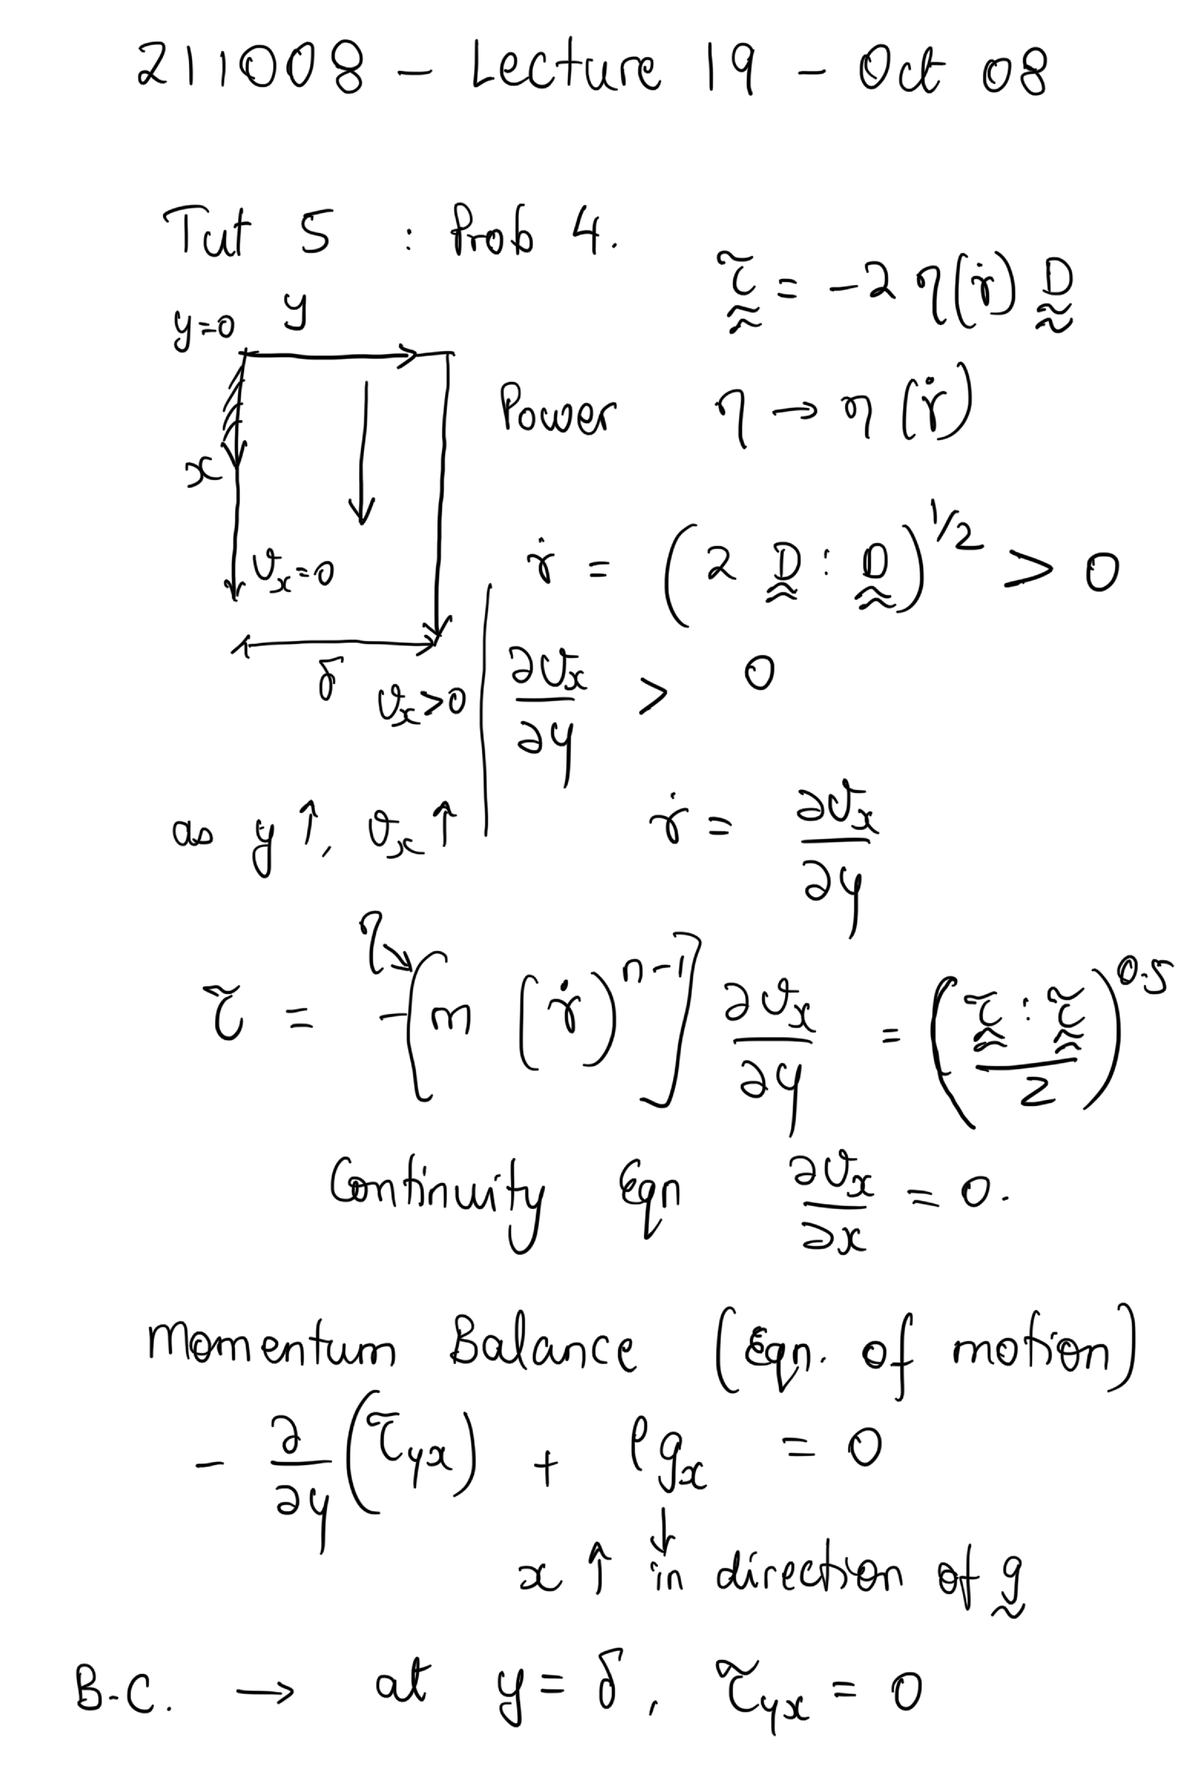 211008 – Lecture 19 – Oct 08
Tut 5 : Prob 4.
τ̰ = -2 η(γ̇) D̰
y=0 y
Power η → η (γ̇)
x
v_x=0
γ̇ = (2 D̰ : D̰)^{1/2} > 0
δ v_x>0
∂v_x/∂y > 0
as y ↑, v_x ↑
γ̇ = ∂v_x/∂y
η
τ = -[m (γ̇)^{n-1}] ∂v_x/∂y = (τ̰ : τ̰/2)^{0.5}
Continuity Eqn ∂v_x/∂x = 0.
Momentum Balance (Eqn. of motion)
- ∂/∂y (τ_yx) + ρg_x = 0
x ↑ in direction of g̰
B.C. → at y = δ, τ_yx = 0